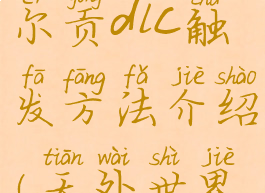 尔贡dlc触
fā fāng fǎ jiè shào
发方法介绍
tiān wài shì jiè
(天外世界